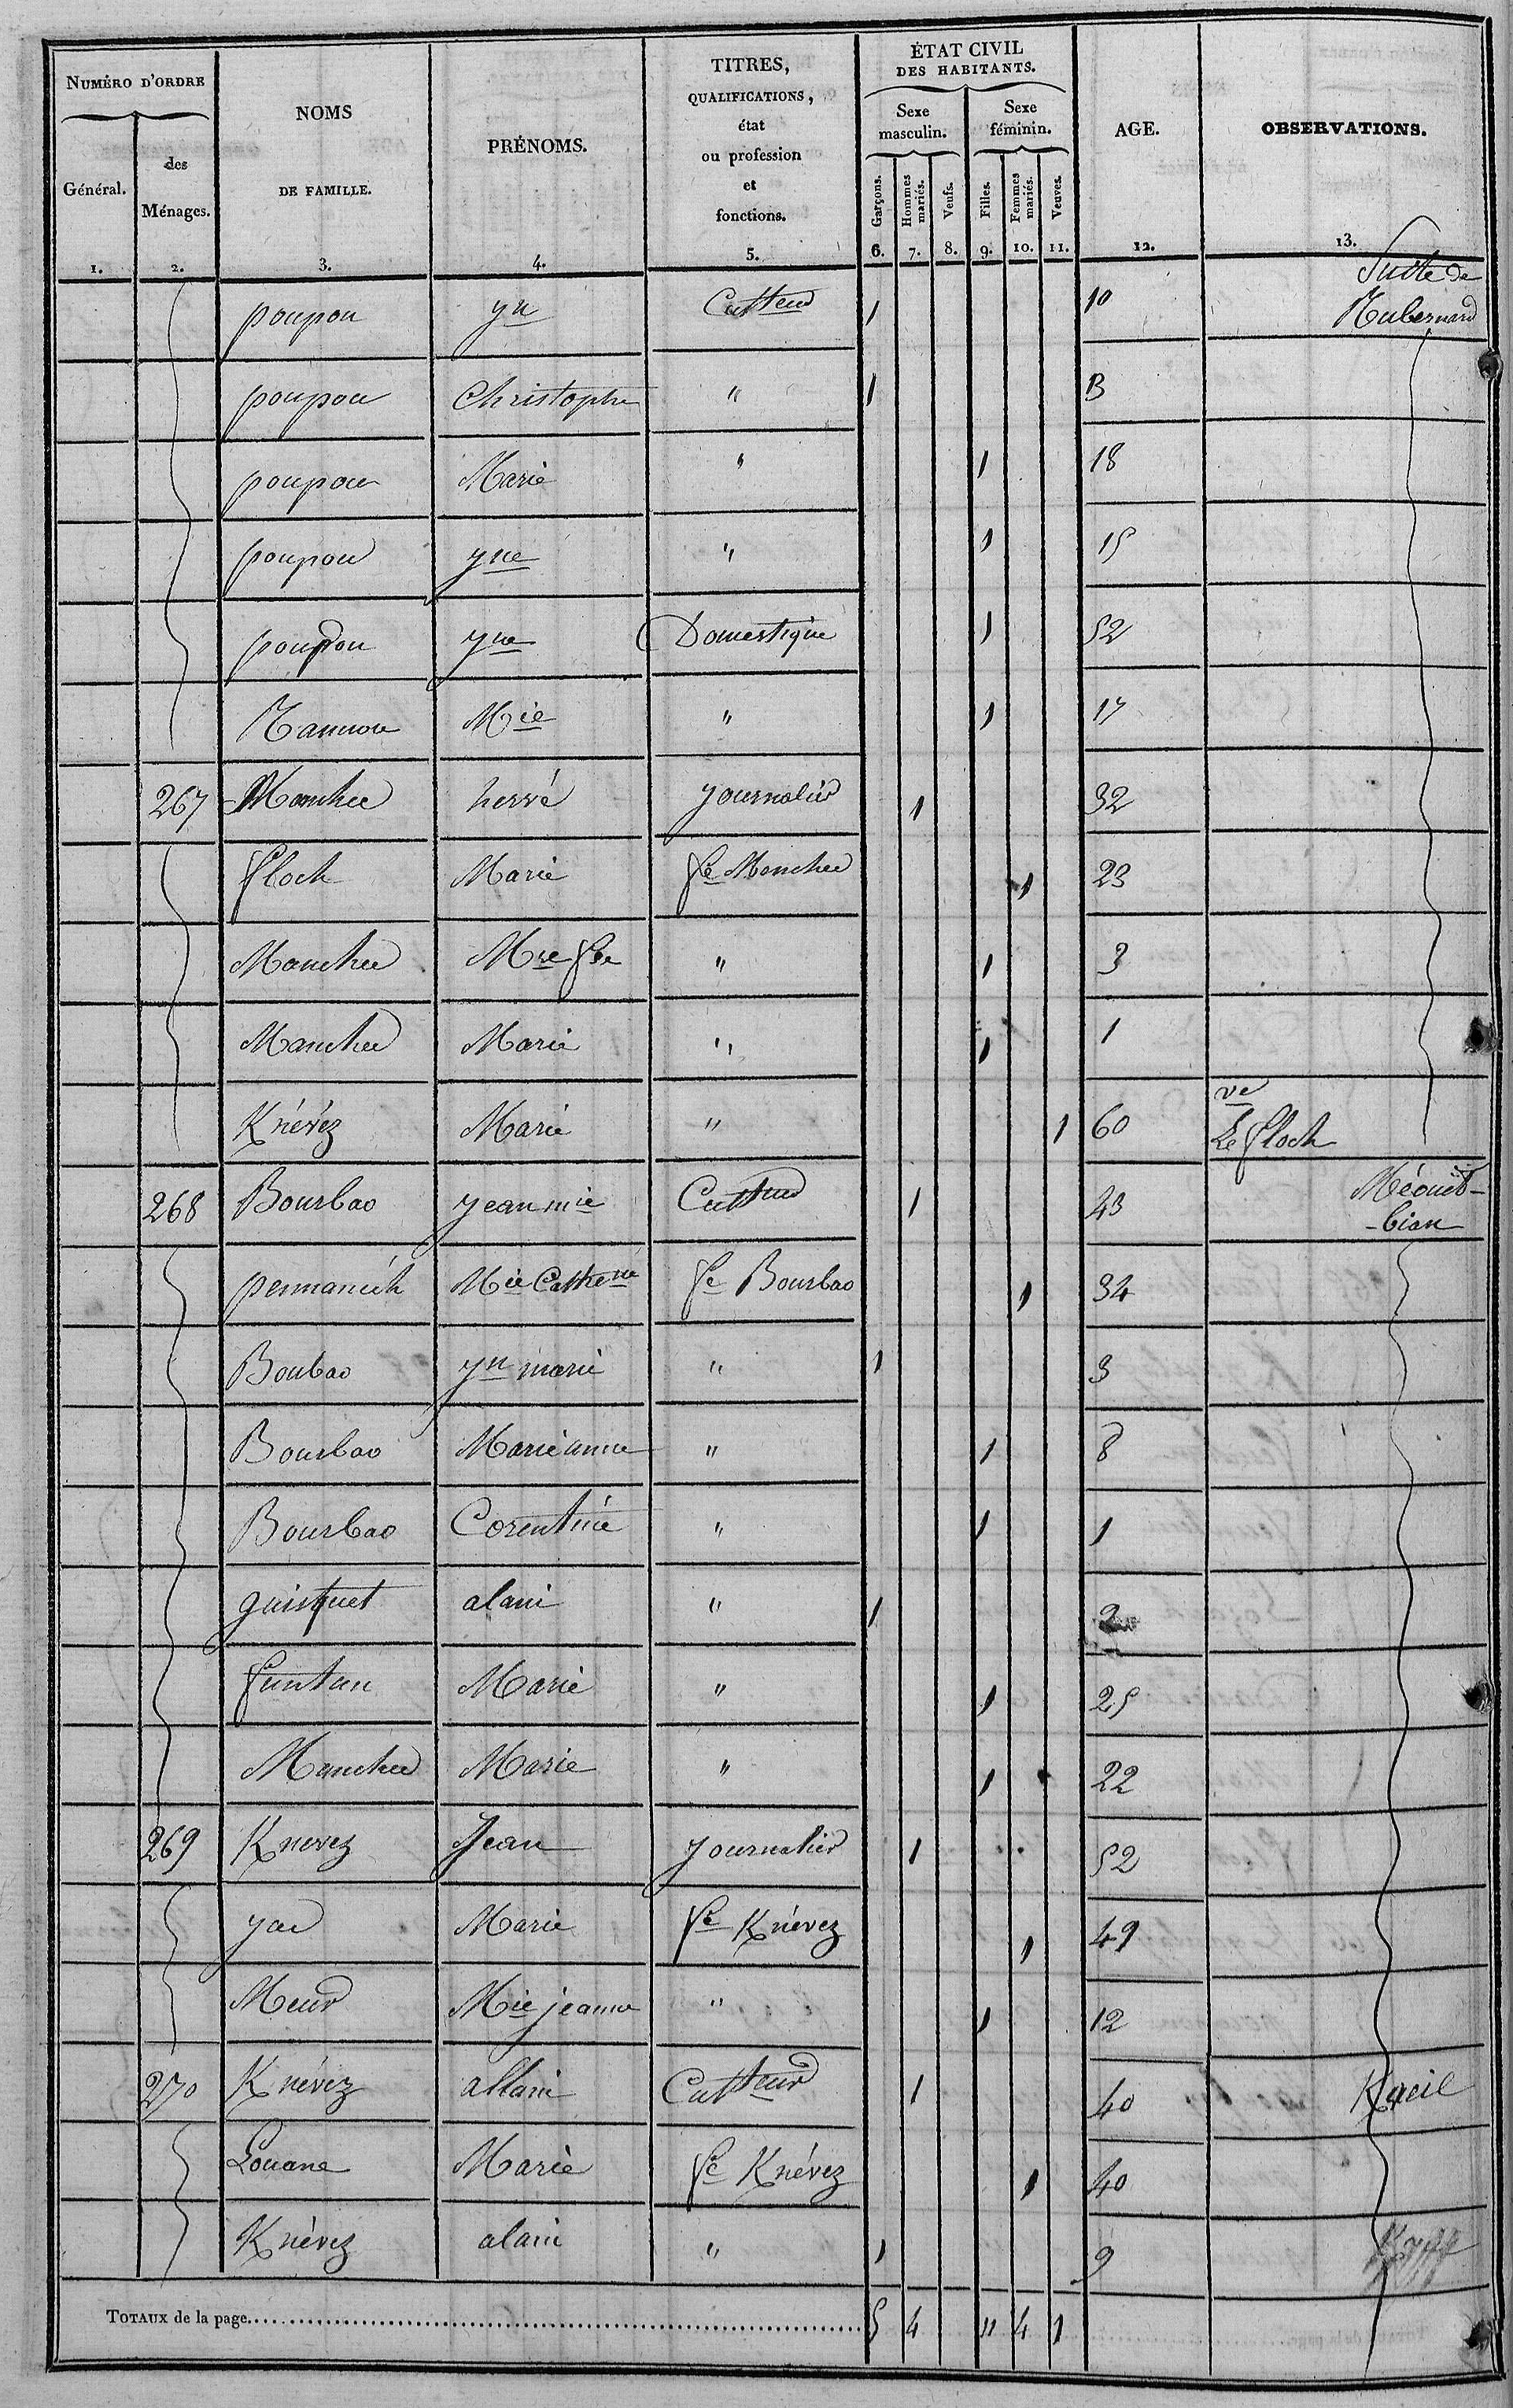 NUMÉRO D'ORDRE
Général.
des
Ménages.
NOMS
DE FAMILLE.
PRÉNOMS.
TITRES,
QUALIFICATIONS,
état
ou profession
et
fonctions.
ÉTAT CIVIL
DES HABITANTS.
Sexe
masculin.
Sexe
féminin.
Garçons.
Hommes mariés.
Veufs.
Filles.
Femmes mariés.
Veuves.
AGE.
OBSERVATIONS.
1. 2. 3. 4. 5. 6. 7. 8. 9. 10. 11. 12. 13.
Suite de
poupon yn Cultteur 1 10
poupon Christophe " 1 13
poupon Marie " 1 18
poupon yne " 1 15
poupon yne Domestique 1 52
Tannou Mie " 1 17
267 Manchec hervé journalier 1 32
floch Marie fe Manchec 1 23
Manchec Mre " 1 3
Manchec Marie " 1 1
Knévéz Marie " 1 60 ve Le floch
268 Bourbao jean mie Cultteur 1 43 bian
pennanéch Mie Cathene fe Bourbao 1 34
Boubao yn marie " 1 3
Bourbao Marie anne " 1 8
Bourbao Corentine " 1 1
guisquet alain " 1 2
Marie " 1 25
Manchec Marie " 1 22
269 Knevez Jean journalier 1 52
Marie fe Knévez 1 49
Meur Mie jeanne " 1 12
270 Knévéz allain Cultteur 1 40
Louane Marie fe Knévez 1 40
Knévez alain " 1 9
TOTAUX de la page. 5 4 11 4 1